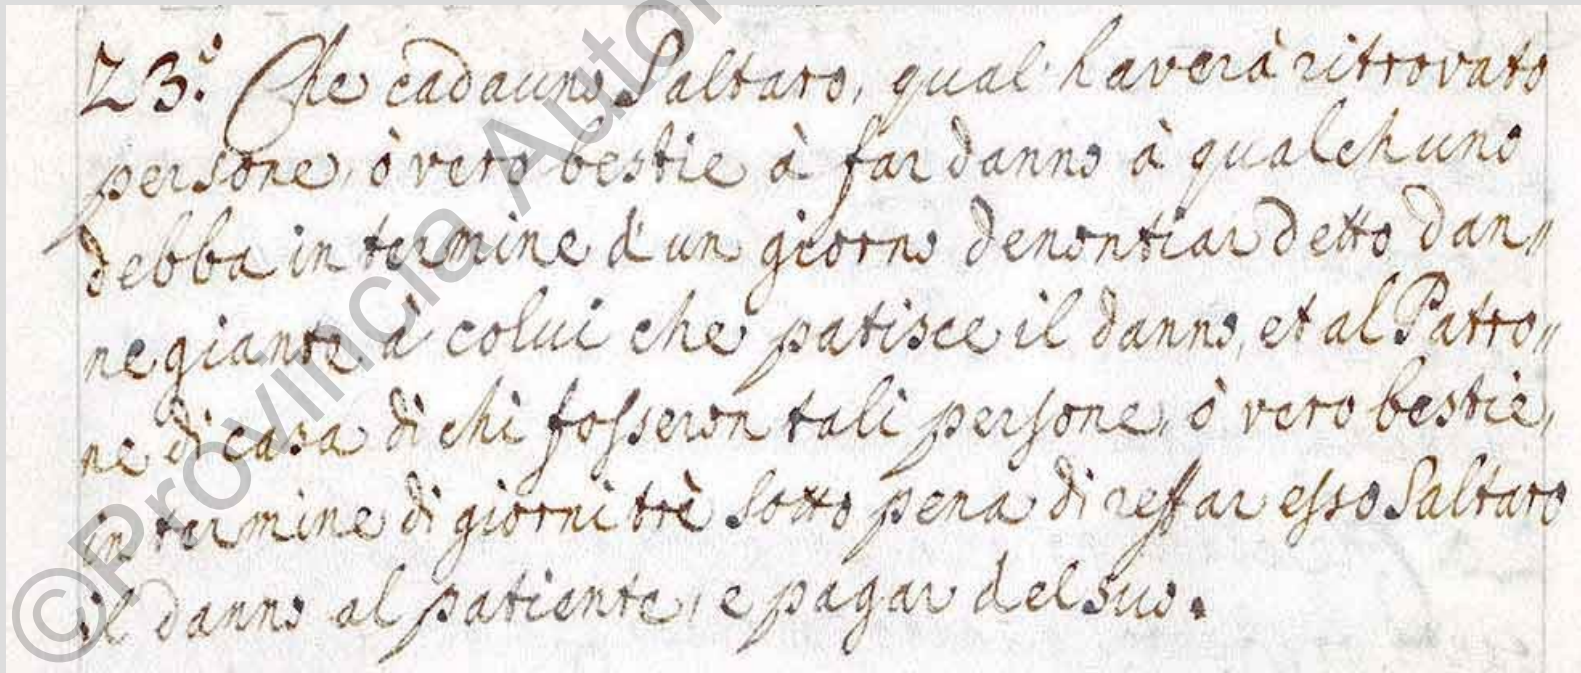 23.° Che cadauno Saltaro, qual haverà ritrovato
persone, ò vero bestie à far danno à qualchuno
debba in termine d'un giorno denontiar detto dan„
negiante à colui che patisce il danno, et al Patro„
ne di casa di chi fosseron tali persone, ò vero bestie,
in termine di giorni trè sotto pena di reffar esso Saltaro
il danno al patiente, e pagar del suo.
©Provincia Auto